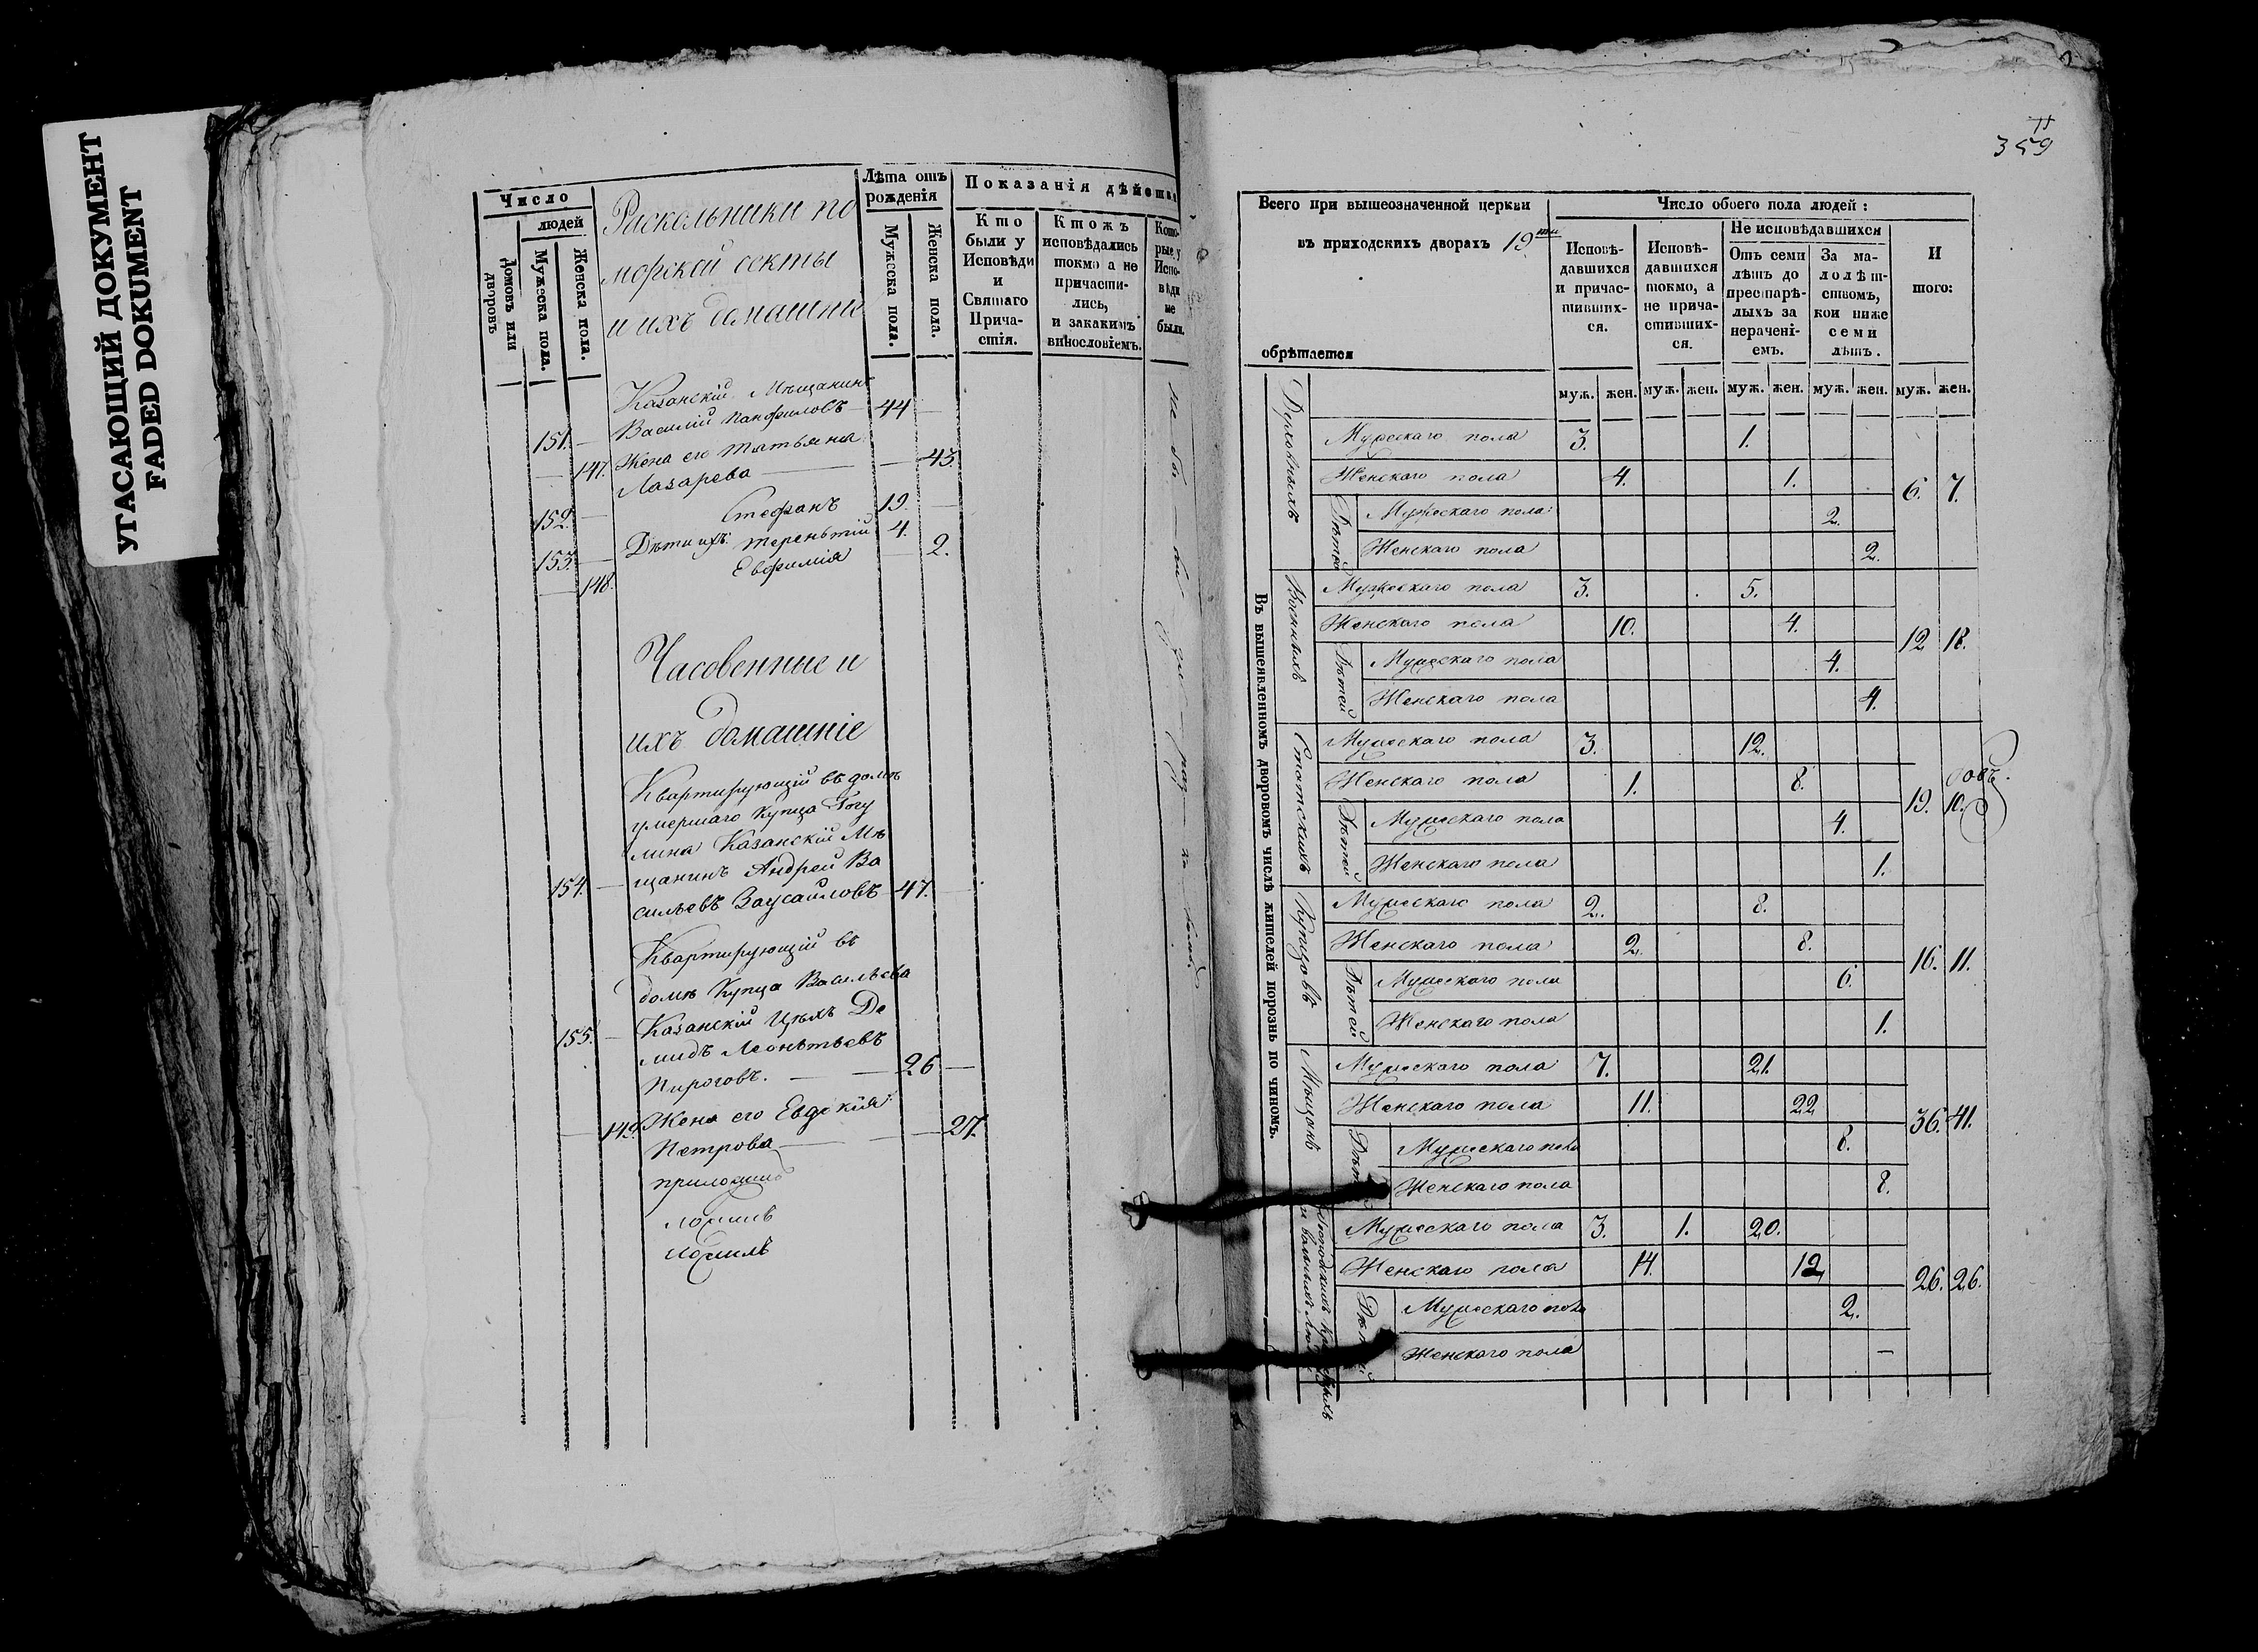 УГАСАЮЩИЙ ДОКУМЕНТ
FADED DOKUMENT
Число
людей
Домовъ или дворовъ
Мужеска пола.
Женска пола.
Раскольники по
морской секты
и ихъ домашніе
Лѣта отъ рожденія
Мужеска пола.
Женска пола.
Показанія дѣйства
Кто были у Исповѣди и Святаго Причастія.
Ктожъ исповѣдались токмо а не причастились, и закакимъ винословіемъ.
Которые у Исповѣди не были.
Казанскій Мѣщанинъ
151. — Василій Панфиловъ — 44 —
— 147. Жена его Татьяна
Лазарева — — 43.
152. — Стефанъ 19. —
153. — Дѣти ихъ: Терентій 4. —
— 148. Евфимія — 2.
Часовенные и
ихъ домашніе
Квартирующій въ домѣ
умершаго Купца Рогу
лина Казанскій Мѣ
154. — щанинъ Андрей Ва
сильевъ Заусайловъ 47. —
Квартирующій въ
домѣ Купца Васильева
155. — Казанскій Цѣхъ Де
мидъ Леонтьевъ
Пироговъ. — — 26 —
— 149. Жена его Евдокія
Петрова — — 27.
359
Всего при вышеозначенной церкви
въ приходскихъ дворахъ 19ти
обрѣтается
Число обоего пола людей:
Исповѣдавшихся и причастившихся.
Исповѣдавшихся токмо, а не причастившихся.
Не исповѣдавшихся
Отъ семи лѣтъ до престарѣлыхъ за нерачені-емъ.
За малолѣтствомъ, кои ниже семи лѣтъ.
И того:
муж. жен. муж. жен. муж. жен. муж. жен. муж. жен.
Въ вышеявленномъ дворовомъ числѣ жителей порознь по чиномъ.
Духовныхъ
Мужескаго пола 3. 1.
Женскаго пола 4. 1.
6. 7.
Дѣтей
Мужескаго пола 2.
Женскаго пола 2.
Военныхъ
Мужескаго пола 3. 5.
Женскаго пола 10. 4.
12 18.
Дѣтей
Мужескаго пола 4.
Женскаго пола 4.
Статскихъ
Мужескаго пола 3. 12.
Женскаго пола 1. 8.
19. 10.
Дѣтей
Мужескаго пола 4.
Женскаго пола 1.
Купцовъ
Мужескаго пола 2. 8.
Женскаго пола 2. 8.
16. 11.
Дѣтей
Мужескаго пола 6.
Женскаго пола 1.
Мѣщанъ
Мужескаго пола 7. 21.
Женскаго пола 11. 22
36. 41.
Дѣтей
Мужескаго пола 8.
Женскаго пола 8.
Мужескаго пола 3. 1. 20.
Женскаго пола 14. 12
26. 26.
Дѣтей
Мужескаго пола 2.
Женскаго пола —